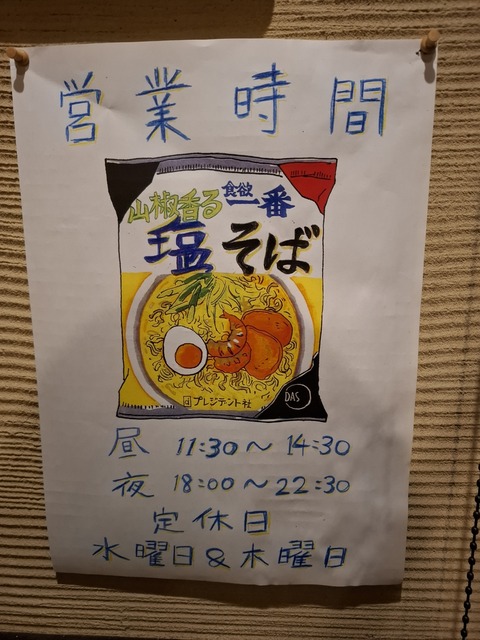 営業時間
山椒香る 食欲一番
塩そば
プレジテント社
DAS
昼 11:30～14:30
夜 18:00～22:30
定休日
水曜日&木曜日